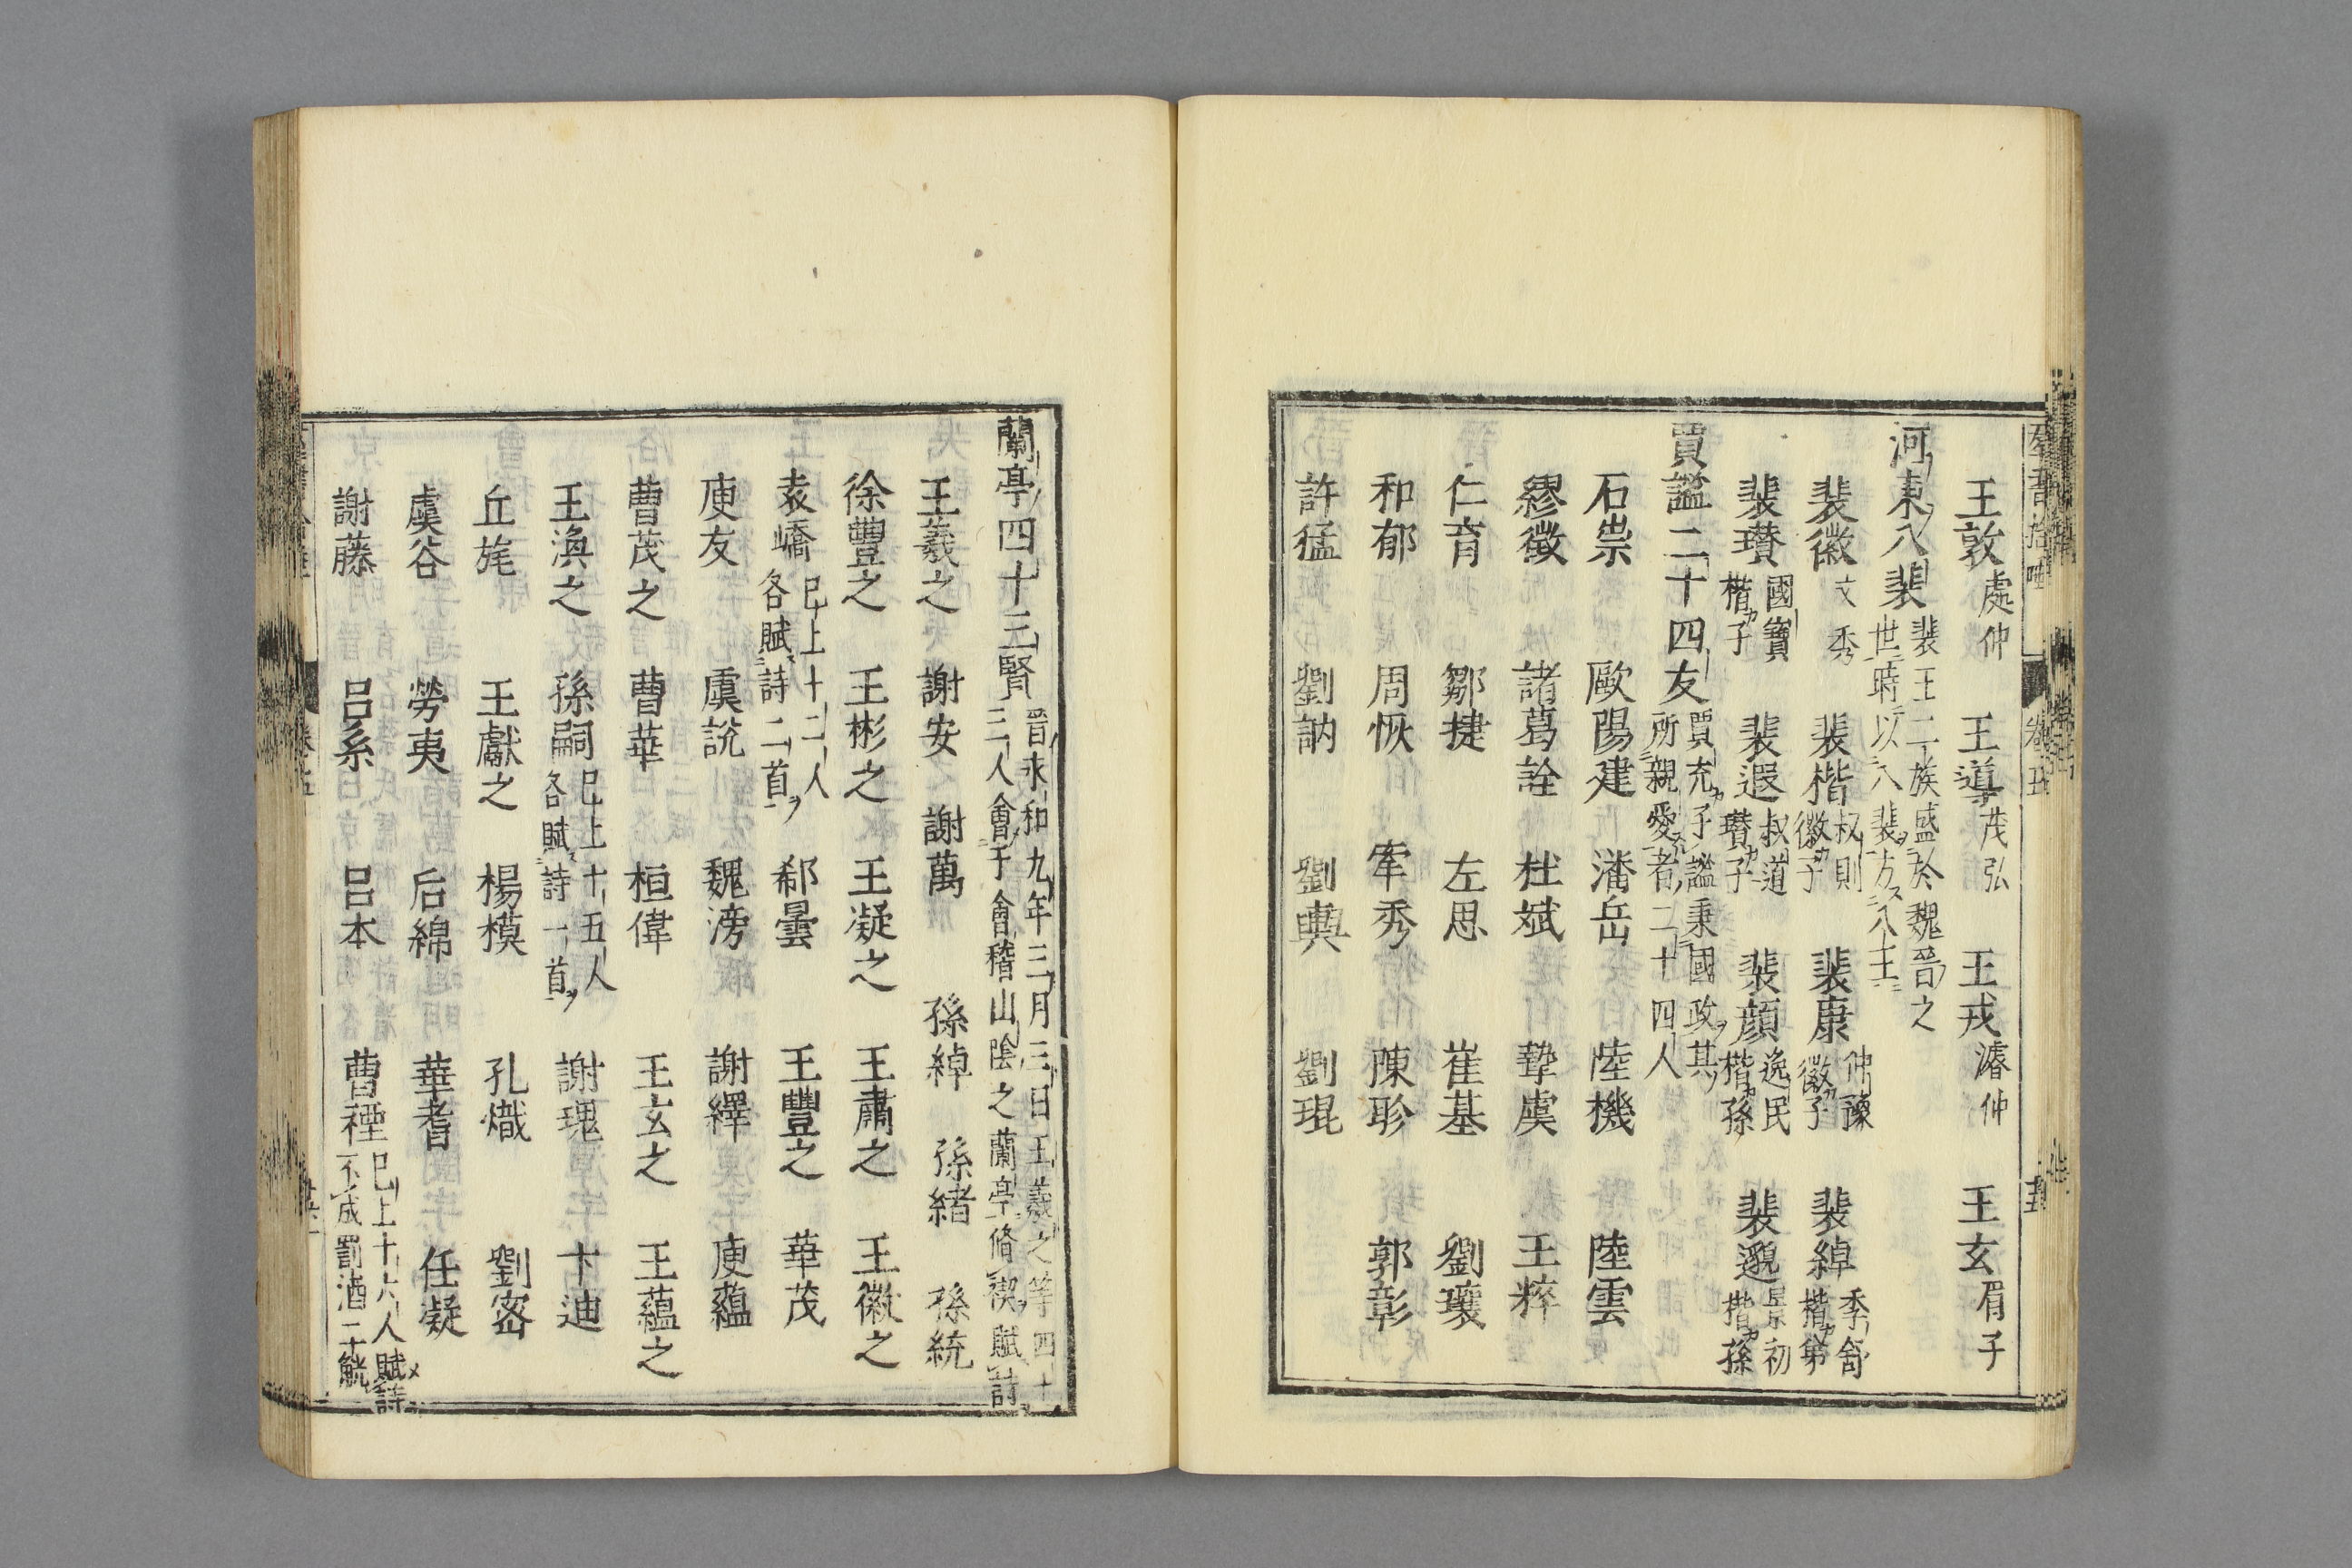 王敦處仲 王導茂弘 王戎濬仲 王玄眉子
河東八裴裴王二族盛於魏晉之世時以八裴方八王
裴徽文秀 裴楷叔則徽子 裴康仲豫徽子 裴綽季舒楷弟
裴瓚國寶楷子 裴遐叔道瓚子 裴頠逸民楷孫 裴邈景初楷孫
賈謐二十四友賈充子謐秉國政其所親愛者二十四人
石崇 歐陽建 潘岳 陸機 陸雲
繆徵 諸葛詮 杜斌 摯虞 王粹
仁育 鄒捷 左思 崔基 劉瓌
和郁 周恢 牽秀 陳眕 郭彰
許猛 劉訥 劉輿 劉琨
蘭亭四十三賢晉永和九年三月三日王羲之等四十三人會于會稽山陰之蘭亭脩禊賦詩
王羲之 謝安 謝萬 孫綽 孫緒 孫統
徐豐之 王彬之 王凝之 王肅之 王徽之
袁嶠已上十二人各賦詩二首 郗曇 王豐之 華茂
庾友 虞說 魏滂 謝繹 庾蘊
曹茂之 曹華 桓偉 王玄之 王蘊之
王渙之 孫嗣已上十五人各賦詩一首 謝瑰 卞迪
丘旄 王獻之 楊模 孔熾 劉密
虞谷 勞夷 后綿 華耆 任凝
謝藤 呂系 呂本 曹禋已上十六人賦詩不成罰酒二觥